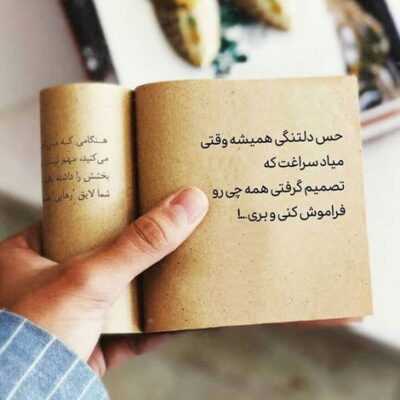 حس دلتنگی همیشه وقتی
میاد سراغت که
تصمیم گرفتی همه چی رو
فراموش کنی و بری...!
هنگامی که
می‌کنید، مهم
بخشش را داشته
شما لایق رهایی